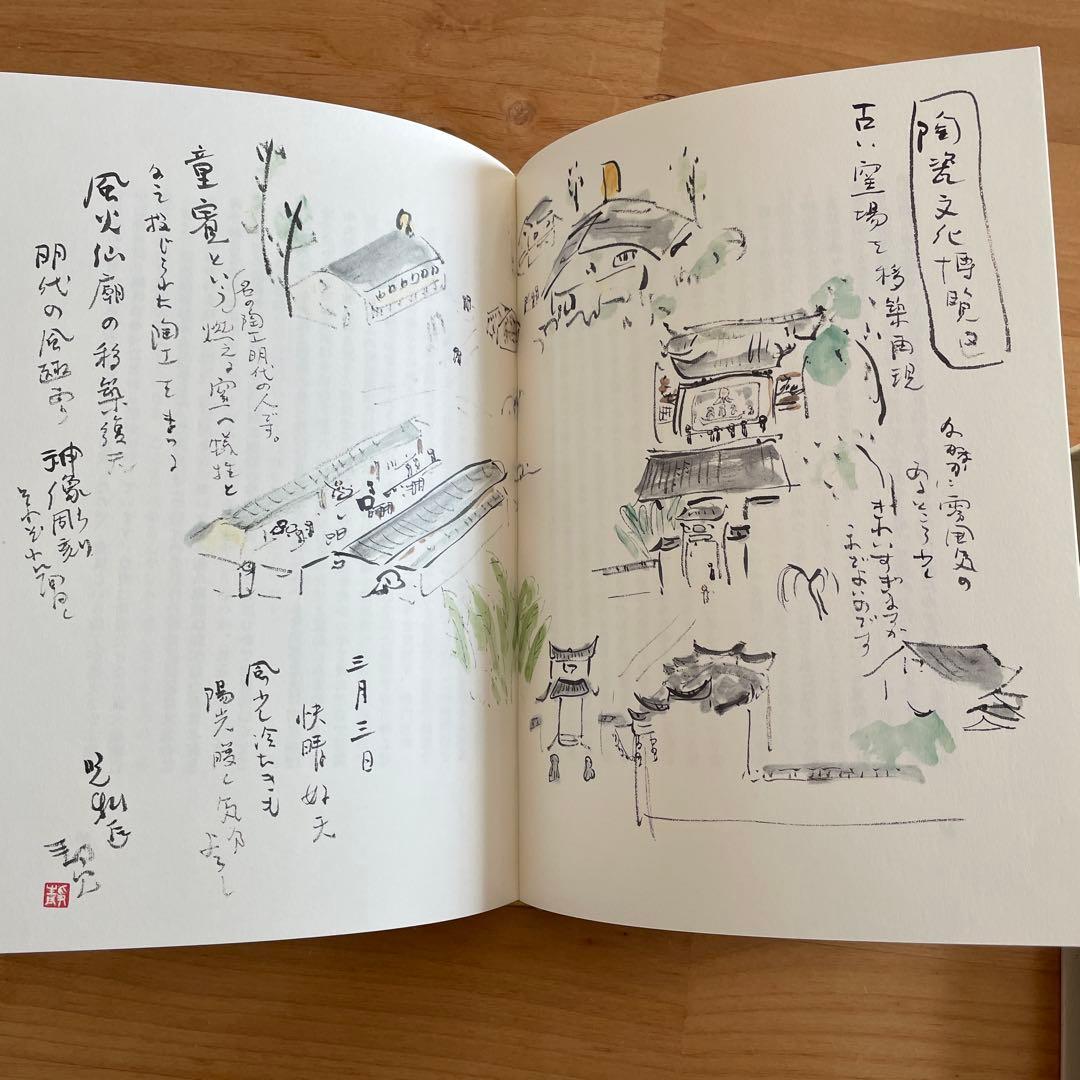 陶瓷文化博覧区
古い窯場を移築再現
雰囲気の
あるところも
きれいすぎますが
まあよいのです
童賓という
名の陶工 明代の人です。
燃える窯へ犠牲と
身を投じられた陶工をまつる
風火仙廟の移築復元
明代の風趣
神像彫刻
三月三日
快晴 好天
風は冷たきも
陽光暖く気分よろし